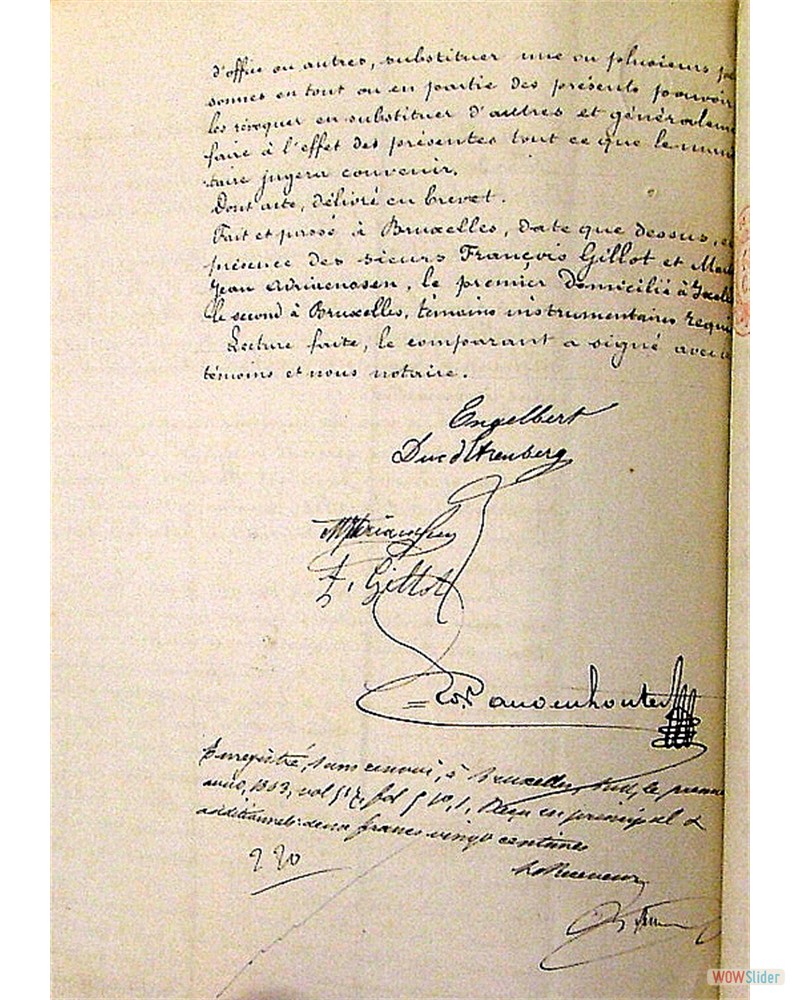 d'office ou autres, substituer une ou plusieurs per
sonnes en tout ou en partie des présents pouvoir
les révoquer en substituer d'autres et généraleme
faire à l'effet des présentes tout ce que le man
taire jugera convenir.
Dont acte, délivré en brevet.
Fait et passé à Bruxelles, date que dessus, e
présence des sieurs François Gillot et
Jean, le premier domicilié à Ixell
le second à Bruxelles, témoins instrumentaires requi
Lecture faite, le comparant a signé avec
témoins et nous notaire.
Engelbert
Duc d'Arenberg
F. Gillot
Enregistré, sans renvoi, à Bruxelles, Sud, le
vol fol Reçu en principal &
additionnels deux francs vingt centimes
2 20
Le Receveur
WOWSlider